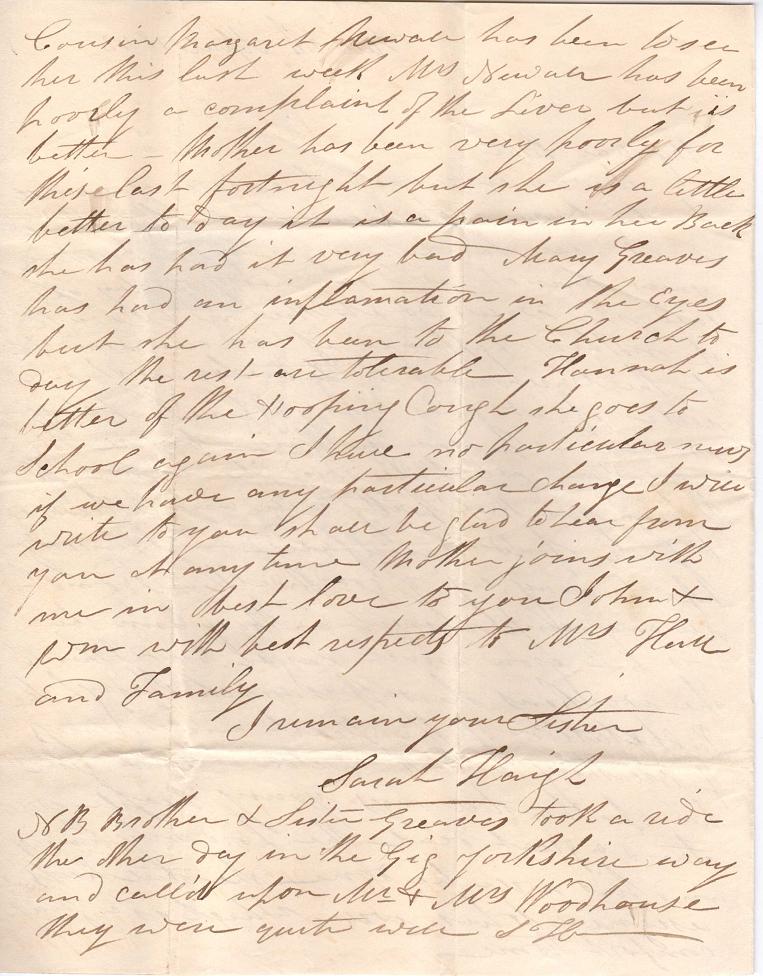 Cousin Margaret Newall has been to see
her this last week Mrs Newall has been
poorly a complaint of the Liver but is
better - Mother has been very poorly for
these last fortnight but she is a little
better to day it is a pain in her Back
she has had it very bad Mary Greaves
has had an inflamation in the Eyes
but she has been to the Church to
day the rest are tolerable Hannah is
better of the Hooping Cough she goes to
School again I have no particular news
if we have any particular change I will
write to you shall be glad to hear from
you at any time Mother joins with
me in best love to you John &
Wm with best respects to Mrs Hall
and Family
I remain your Sister
Sarah Haigh
NB Brother & Sister Greaves took a ride
the other day in the Gig yorkshire way
and call'd upon Mr & Mrs Woodhouse
they were quite well S H